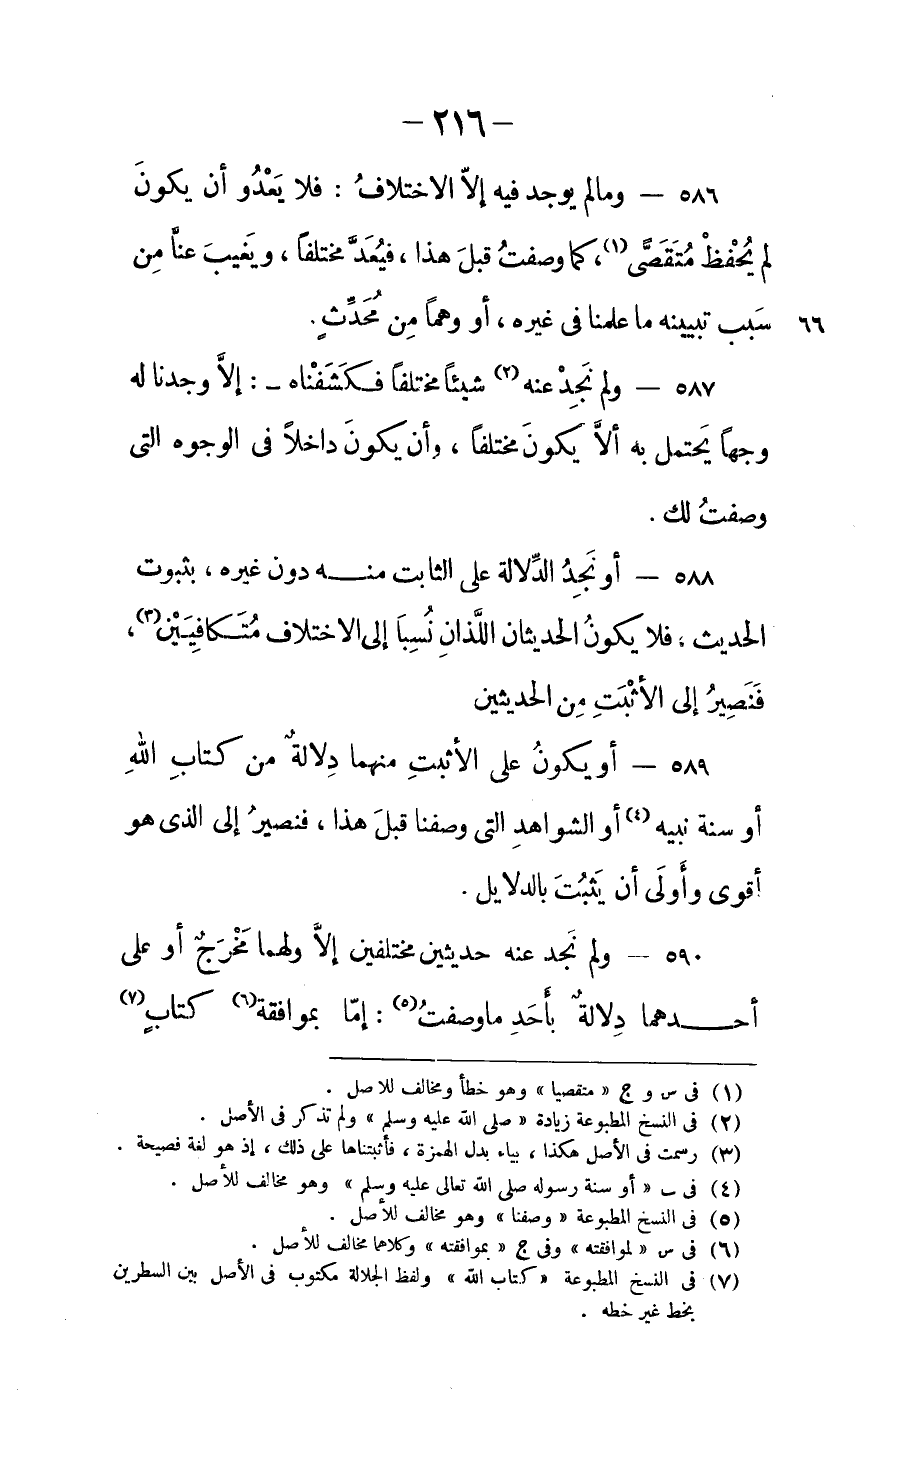 — ٢١٦ —
٥٨٦ — ومالم يوجد فيه إلاّ الاختلافُ : فلا يَعْدُو أن يكونَ
لم يُحْفظْ مُتَقَصًّى(١)، كما وصفتُ قبلَ هذا ، فيُعَدَّ مختلفاً ، ويَغيبَ عنَّا مِن
٦٦ سَبَب تبيينه ما علمنا فى غيره ، أو وهماً مِن مُحَدِّثٍ .
٥٨٧ — ولم نَجِدْ عنه(٢) شيئاً مختلفاً فـكَشَفْناه ـ : إلاَّ وجدنا له
وجهاً يَحتمل به ألاَّ يكونَ مختلفاً ، وأن يكونَ داخلاً فى الوجوه التى
وصفتُ لك .
٥٨٨ — أو نَجِدُ الدِّلالة على الثابت منــه دون غيره ، بثبوت
الحديث ، فلا يكونُ الحديثان اللَّذانِ نُسِبَا إلى الاختلاف مُتَـكافِيَيْنِ(٣)،
فَنَصِيرُ إلى الأثْبَتِ مِن الحديثين
٥٨٩ — أو يكونُ على الأثبتِ منهما دِلالةٌ من كتابِ اللهِ
أو سنة نبيه(٤) أو الشواهدِ التى وصفنا قبلَ هذا ، فنصيرُ إلى الذى هو
أقوى وأَولَى أن يَثبُتَ بالدلايل .
٥٩٠ — ولم نَجد عنه حديثين مختلفين إلاَّ ولهما مَخْرَجٌ أو على
أحــدهما دِلالةٌ بأَحَدِ ماوصفتُ(٥) : إمّا بموافقة(٦) كتابٍ(٧)
(١) فى س و ج « متقصيا » وهو خطأ ومخالف للاصل .
(٢) فى النسخ المطبوعة زيادة « صلى الله عليه وسلم » ولم تذكر فى الأصل .
(٣) رسمت فى الأصل هكذا ، بياء بدل الهمزة ، فأثبتناها على ذلك ، إذ هو لغة فصيحة .
(٤) فى ب « أو سنة رسوله صلى الله تعالى عليه وسلم » وهو مخالف للأصل .
(٥) فى النسخ المطبوعة « وصفنا » وهو مخالف للأصل .
(٦) فى س « لموافقته » وفى ج « بموافقته » وكلاهما مخالف للأصل .
(٧) فى النسخ المطبوعة « كتاب الله » ولفظ الجلالة مكتوب فى الأصل بين السطرين
بخط غير خطه .